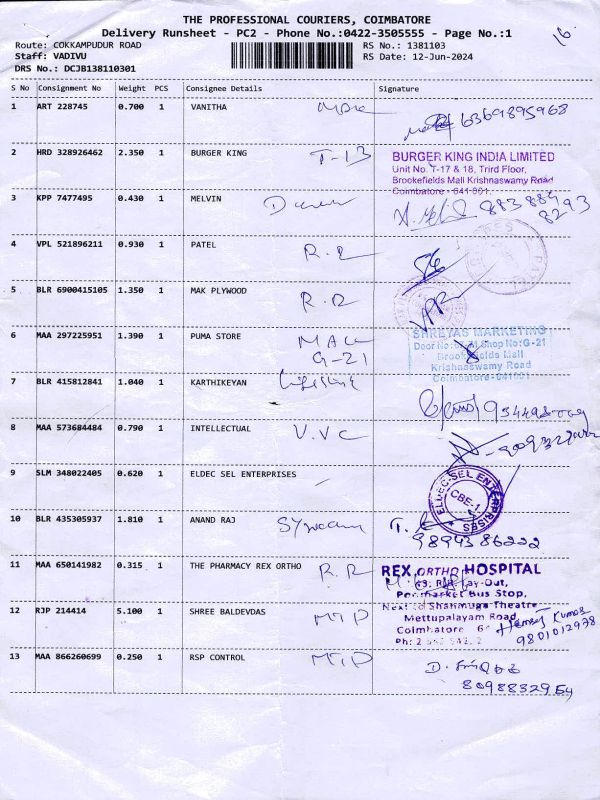 THE PROFESSIONAL COURIERS, COIMBATORE
16
Delivery Runsheet - PC2 - Phone No.:0422-3505555 - Page No.:1
Route: COKKAMPUDUR ROAD RS No.: 1381103
Staff: VADIVU RS Date: 12-Jun-2024
DRS No.: DCJB138110301
S No Consignment No Weight PCS Consignee Details Signature
1 ART 228745 0.700 1 VANITHA
6369895968
2 HRD 328926462 2.350 1 BURGER KING T-13
BURGER KING INDIA LIMITED
Unit No. T-17 & 18, Trird Floor,
Brookefields Mall Krishnaswamy Road
Coimbatore - 641 001.
3 KPP 7477495 0.430 1 MELVIN
8838884
8293
4 VPL 521896211 0.930 1 PATEL R.R
5 BLR 6900415105 1.350 1 MAK PLYWOOD R.R
6 MAA 297225951 1.390 1 PUMA STORE MALL
G-21
SHREYAS MARKETING
Shop No: G-21
Brookefields Mall
Krishnaswamy Road
Coimbatore-641001
7 BLR 415812841 1.040 1 KARTHIKEYAN Lifestyle
8 MAA 573684484 0.790 1 INTELLECTUAL V.V.C
9 SLM 348022405 0.620 1 ELDEC SEL ENTERPRISES
ELDEC-SEL ENTERPRISES
CBE-1
10 BLR 435305937 1.810 1 ANAND RAJ
9894386222
11 MAA 650141982 0.315 1 THE PHARMACY REX ORTHO R.R
REX ORTHO HOSPITAL
Lay-Out,
Bus Stop,
Next to Shanmuga Theatre
Mettupalayam Road
Coimbatore
12 RJP 214414 5.100 1 SHREE BALDEVDAS MTP
Hemant Kumar
9801012978
13 MAA 866260699 0.250 1 RSP CONTROL MTP
8098832954